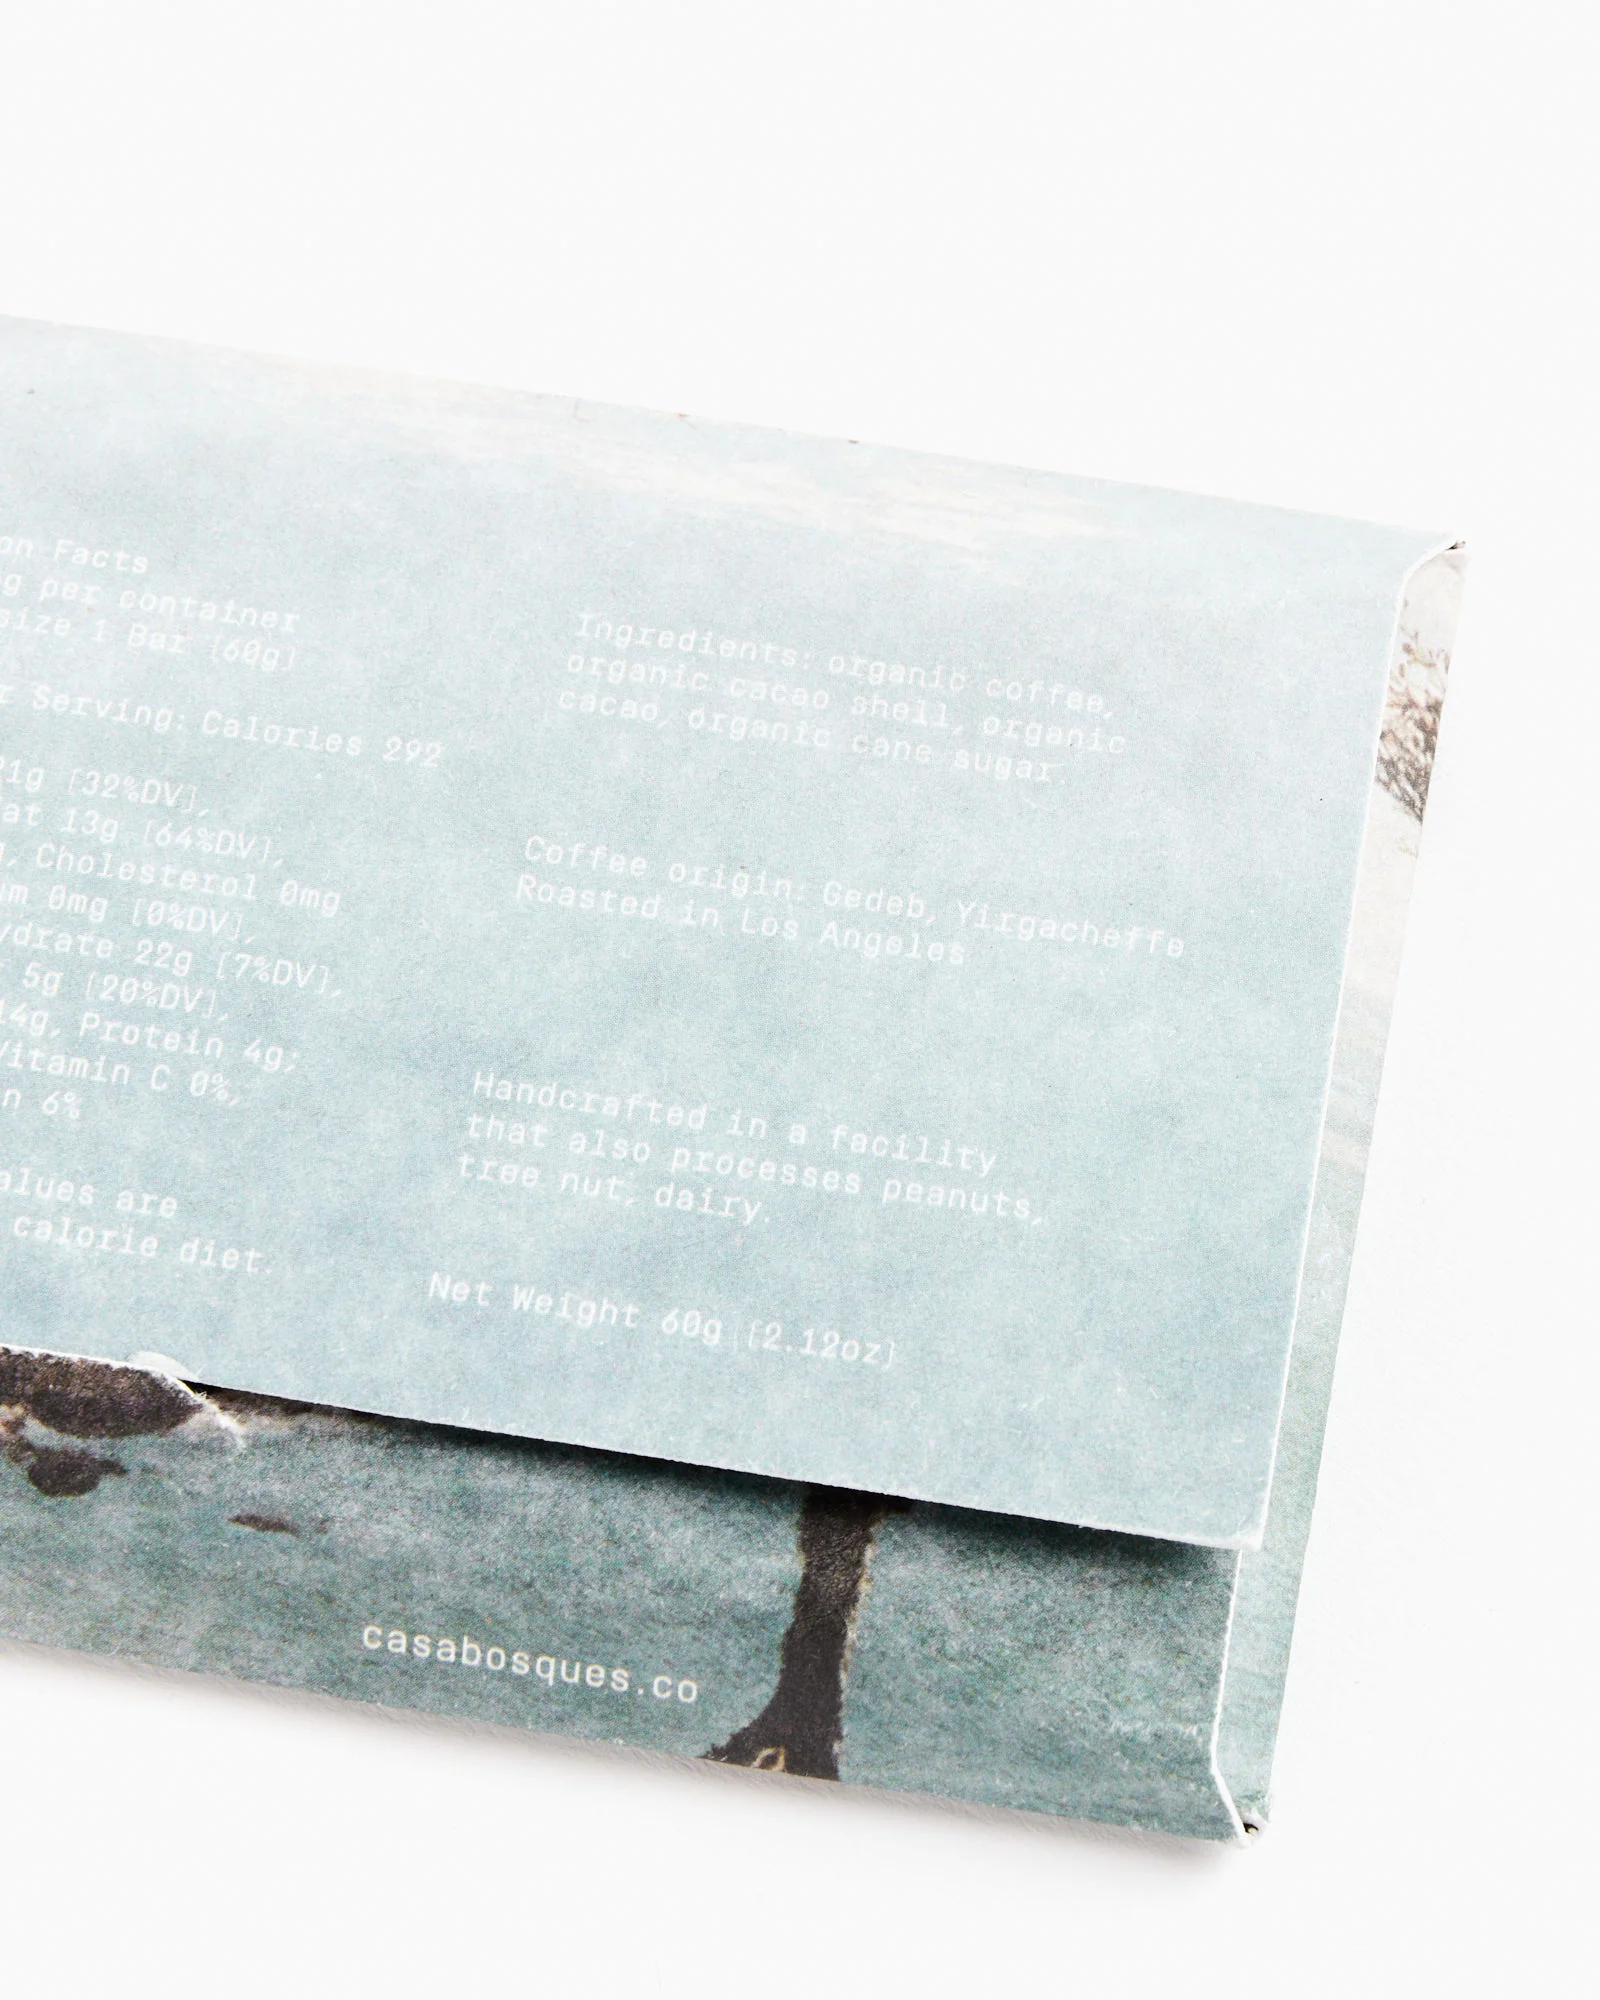 on Facts
g per container
size 1 Bar [60g]
r Serving: Calories 292
21g [32%DV],
at 13g [64%DV],
, Cholesterol 0mg
um 0mg [0%DV],
ydrate 22g [7%DV],
5g [20%DV],
14g, Protein 4g;
Vitamin C 0%,
n 6%
alues are
calorie diet.
Ingredients: organic coffee,
organic cacao shell, organic
cacao, organic cane sugar.
Coffee origin: Gedeb, Yirgacheffe
Roasted in Los Angeles
Handcrafted in a facility
that also processes peanuts,
tree nut, dairy.
Net Weight 60g [2.12oz]
casabosques.co